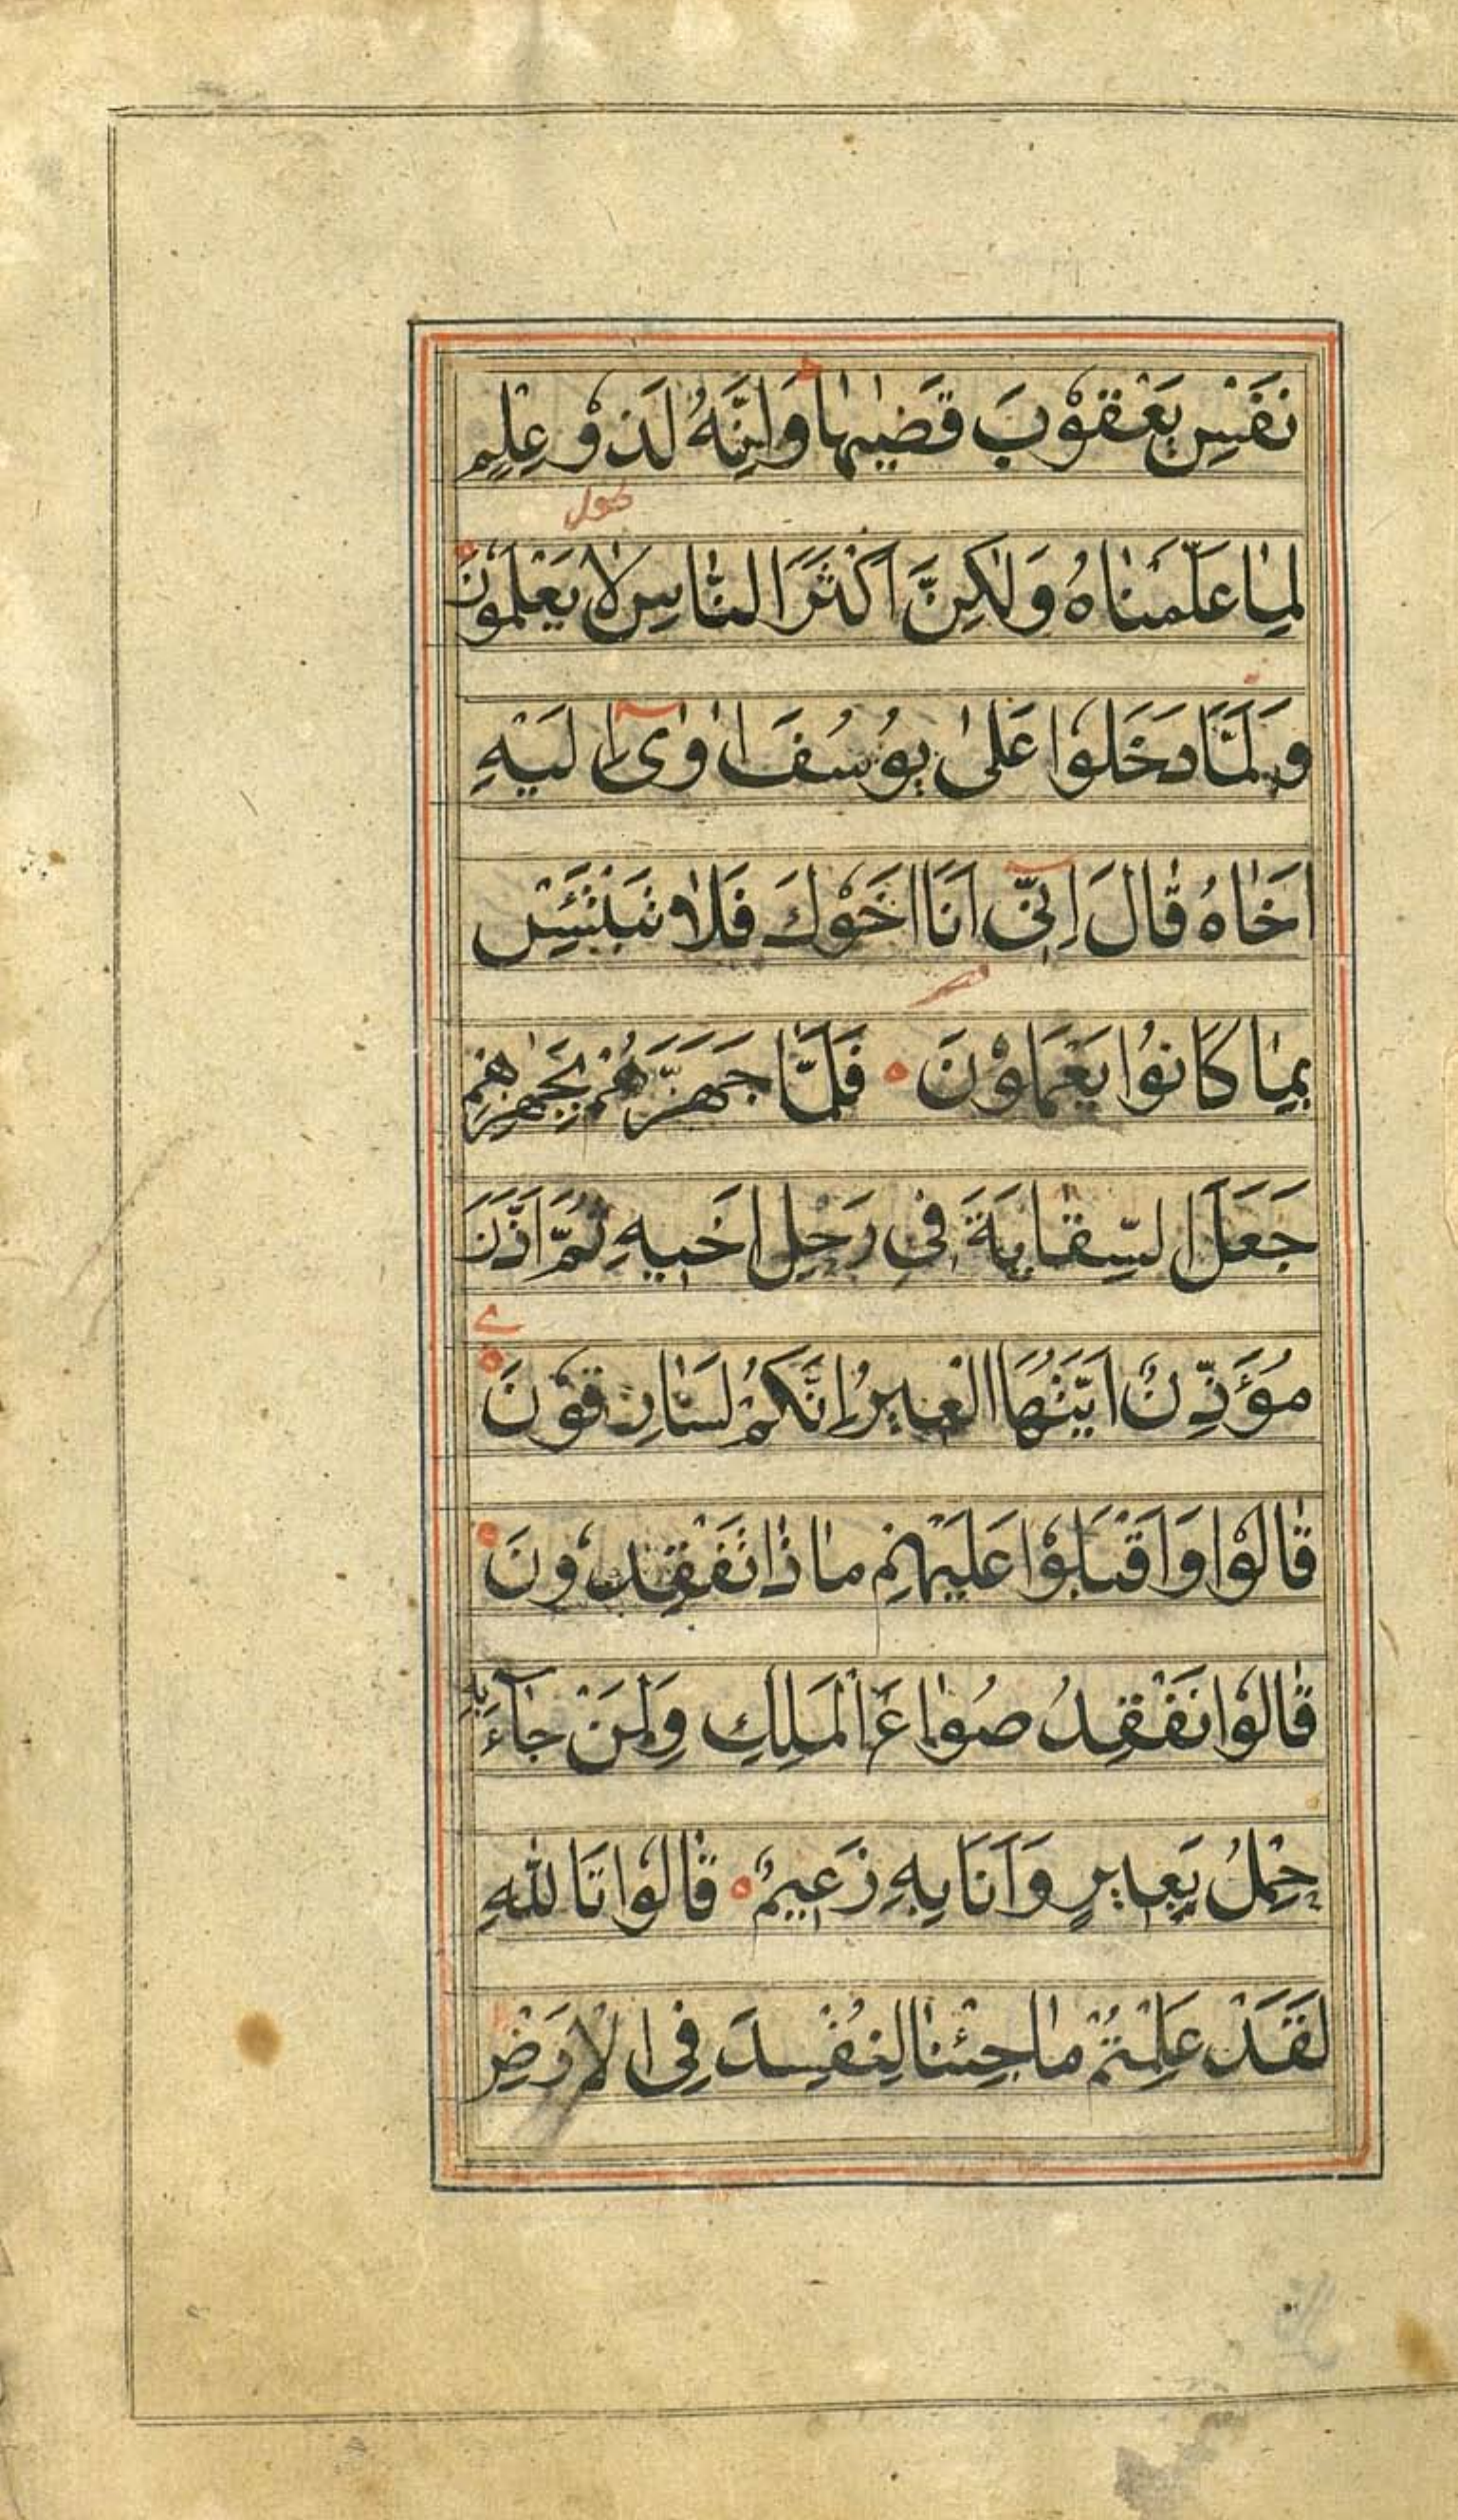 نَفْسِ يَعْقُوْبَ قَضٰيهٰا وَاِنَّهُ لَذُوْ عِلْمٍ
لِمٰا عَلَّمْنٰاهُ وَلٰكِنَّ اَكْثَرَ النّٰاسِ لاٰ يَعْلَمُوْنَ
وَلَمَّا دَخَلُوْا عَلىٰ يُوْسُفَ اٰوٰى اِلَيْهِ
اَخٰاهُ قٰالَ اِنّىٓ اَنَا اَخُوْكَ فَلاٰ تَبْتَئِسْ
بِمٰا كَانُوْا يَعْمَلُوْنَ فَلَمَّا جَهَّزَهُمْ بِجَهٰزِهِمْ
جَعَلَ السِّقٰايَةَ فِى رَحْلِ اَخِيهِ ثُمَّ اَذَّنَ
مُؤَذِّنٌ اَيَّتُهَا الْعِيرُ اِنَّكُمْ لَسٰارِقُوْنَ
قٰالُوْا وَاَقْبَلُوْا عَلَيْهِمْ مٰا ذٰا تَفْقِدُوْنَ
قٰالُوْا نَفْقِدُ صُوٰاعَ الْمَلِكِ وَلِمَنْ جٰآءَ بِهِ
حِمْلُ بَعِيرٍ وَاَنَا بِهِ زَعِيمٌ قٰالُوْا تَاللّٰهِ
لَقَدْ عَلِمْتُمْ مٰا جِئْنٰا لِنُفْسِدَ فِى الْاَرْضِ